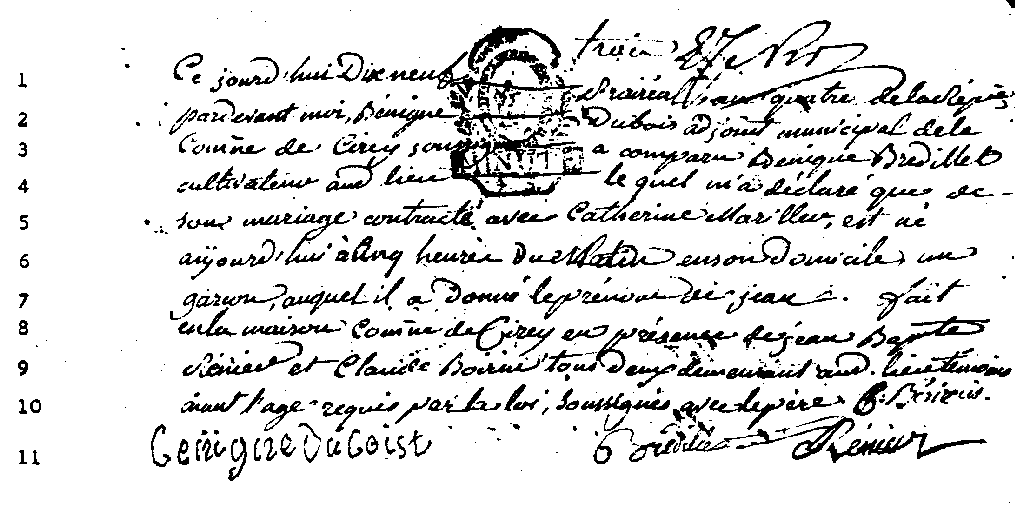 trois
1 Ce jourd'hui Dixneuf Prairéal, an quatre de la Répu
2 pardevant moi, Bénigne Dubois adjoint municipal de la
3 Comñe de Cirey sous a comparu Bénigne Bredillet
4 cultivateur aud. lieu MINUTE lequel m'a déclaré que de
5 son mariage contracté avec Catherine Marillier, est né
6 aujourd'hui à Cinq heures Du Matin en son domicile un
7 garson, auquel il a Donné le prénom de jean. fait
8 en la maison Comñe de Cirey en présence de jean Bapte
9 Rénier et Claude Boirin tous deux demeurant aud. lieu temoins
10 aiant l'age requis par la loi, soussignés avec le père.
11 Benigne Duboist B Rénier